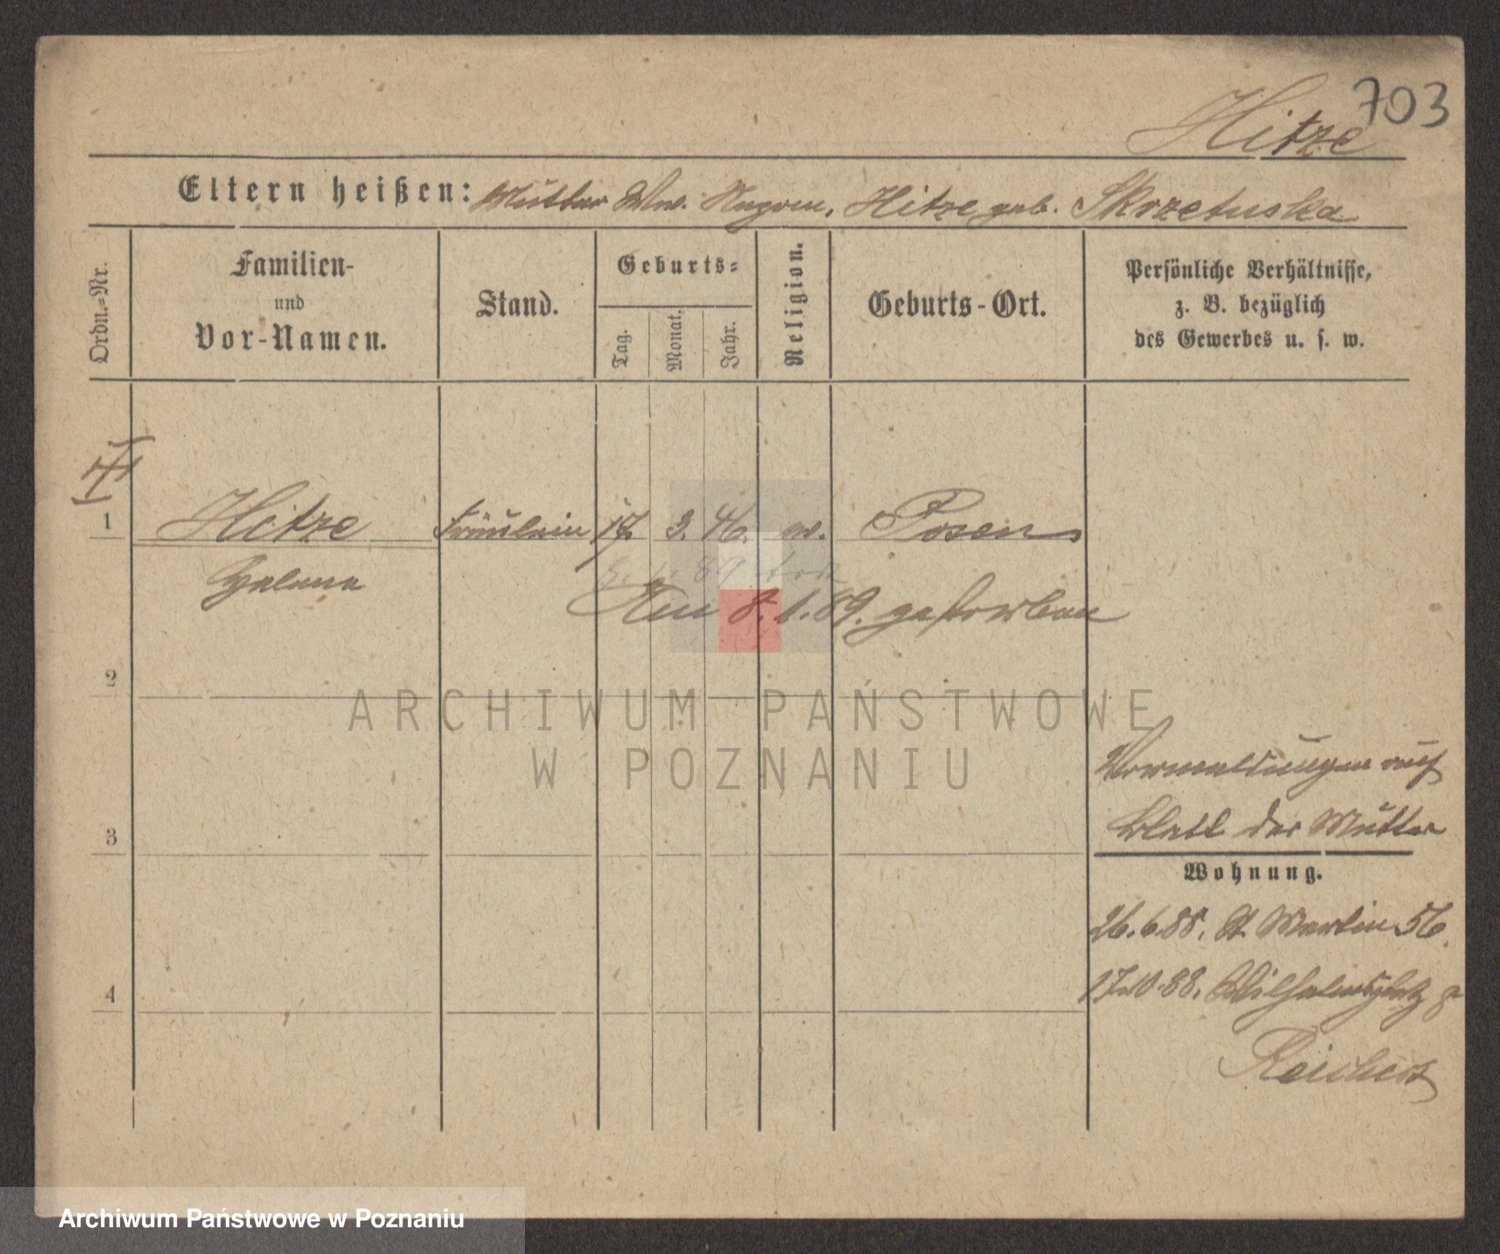 703
Hitze
Eltern heißen: Mutter Ww. Hitze, geb. Skrzetuska
Ordn.=Nr.
Familien-
und
Vor-Namen.
Stand.
Geburts=
Tag.
Monat.
Jahr.
Religion.
Geburts-Ort.
Persönliche Verhältnisse,
z. B. bezüglich
des Gewerbes u. s. w.
1 Hitze Fräulein 17. 3. 46. ev. Posen
Helene
Am 8. 1. 89. gestorben
2
ARCHIWUM PAŃSTWOWE
W POZNANIU
auf
3 Blatt der Mutter
Wohnung.
26.6.88. St. Martin 56.
4 17.10.88. Wilhelmsplatz
Reichert
Archiwum Państwowe w Poznaniu